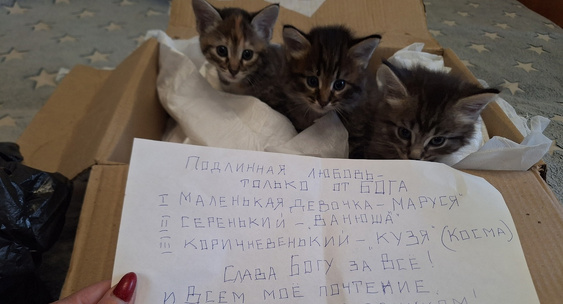 Подлинная любовь-
только от БОГА
I маленькая девочка- Маруся"
II серенький - „Ванюша"
III коричневенький - „Кузя" (Косма)
Слава Богу за все!
и всем мое почтение.